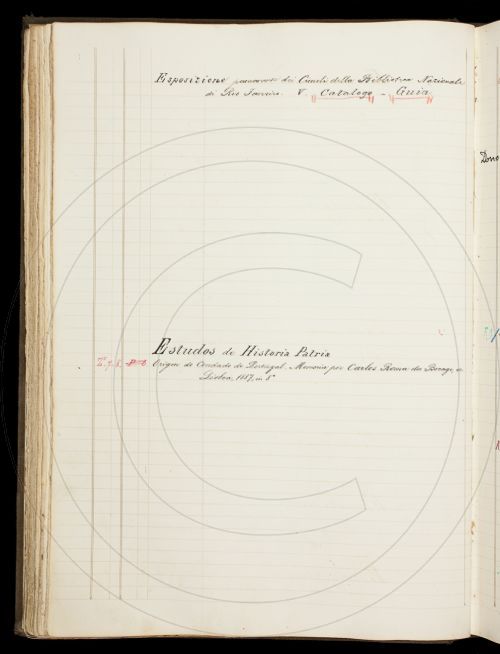 Esposizione permanente dei Cimelii della Biblioteca Nazionale
do Rio Janeiro. V. Catalogo - Guia
Dono
Estudos de Historia Patria
Origem do Condado de Portugal. Memoria por Carlos Roma du Bocage
Lisboa, 1887, in 8°